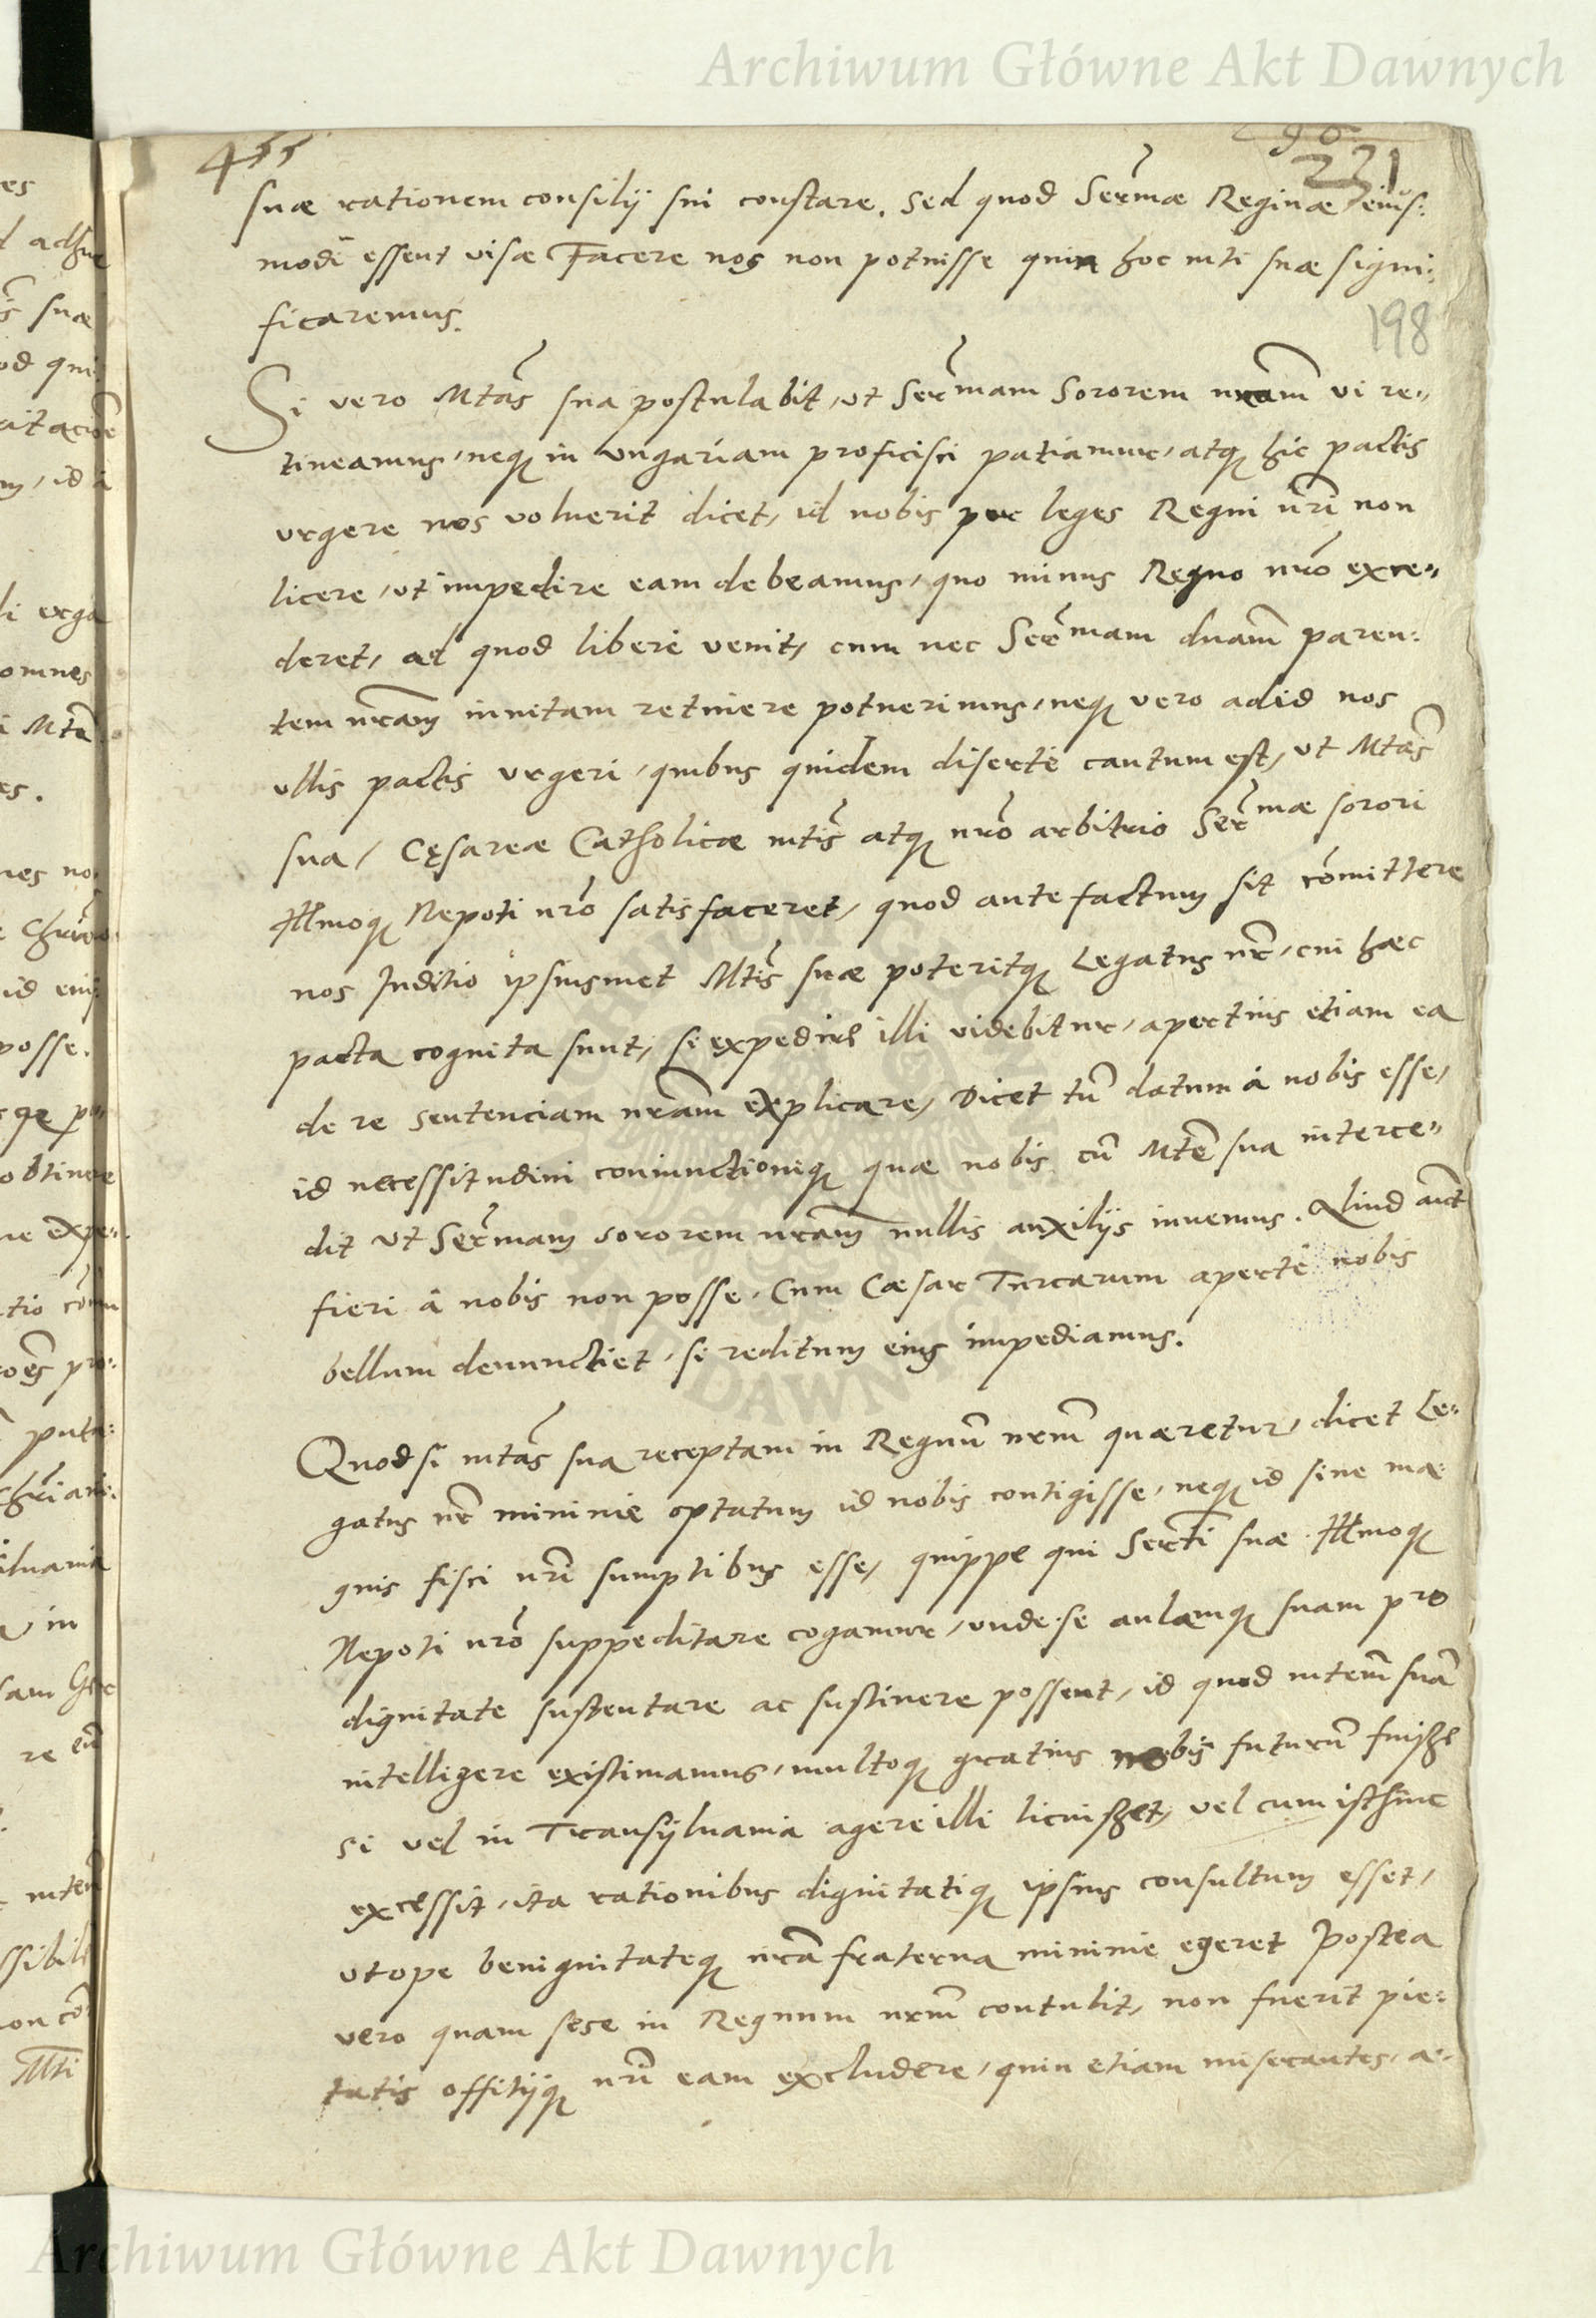 Archiwum Główne Akt Dawnych
455
221
suæ rationem consilij sui constare. Sed quod Sermæ Reginæ eius:
modi essent visæ Facere nos non potuisse quin hoc mti suæ signi:
ficaremus.
198
Si vero Mtas sua postulabit, ut Sermam Sororem nram vi re„
tineamus, neq in Ungariam proficisci patiamur, atq hic pactis
urgere nos voluerit dicet, id nobis per leges Regni nri non
licere, ut impedire eam debeamus, quo minus Regno nro exce„
deret, ad quod liberè venit, cum nec Sermam dnam paren:
tem nram inuitam retinere potuerimus, neq vero ad id nos
ullis pactis urgeri, quibus quidem disertè cautum est, ut Mtas
sua, Cęsareæ Catholicæ mtis atq nro arbitrio Sermæ sorori
Illmoq Nepoti nro satisfaceret, quod ante factum sit comittere
nos Juditio ipsiusmet Mtis suæ poteritq Legatus nr, cui hæc
pacta cognita sunt, si expedire illi videbitur, apertius etiam ea
de re sentenciam nram explicare, Dicet tum datum à nobis esse,
id necessitudini coniunctioniq quæ nobis cum Mte sua interce„
dit ut Sermam sororem nram nullis auxilijs iuuemus. Aliud aut
fieri à nobis non posse, Cum Cæsar Turcarum apertè nobis
bellum denunctiet, si reditum eius impediamus.
Quod si mtas sua receptam in Regnu nrm quæretur, dicet Le„
gatus nr minimè optatum id nobis contigisse, neq id sine ma:
gnis fisci nri sumptibus esse, quippe qui Serti suæ Illmoq
Nepoti nro suppeditare cogamur, unde se aulamq suam pro
dignitate sustentare ac sustinere possent, id quod mtem suam
intelligere existimamus, multoq gratius nobis futuru fuisse
si vel in Transyluania agere illi licuisset, vel cum isthinc
excessit, ita rationibus dignitatiq ipsius consultum esset,
ut ope benignitateq nra fraterna minimè egeret Postea
vero quam sese in Regnum nrm contulit, non fuerit pie:
tatis offitijq nri eam excludere, quin etiam miserantes, a:
Archiwum Główne Akt Dawnych